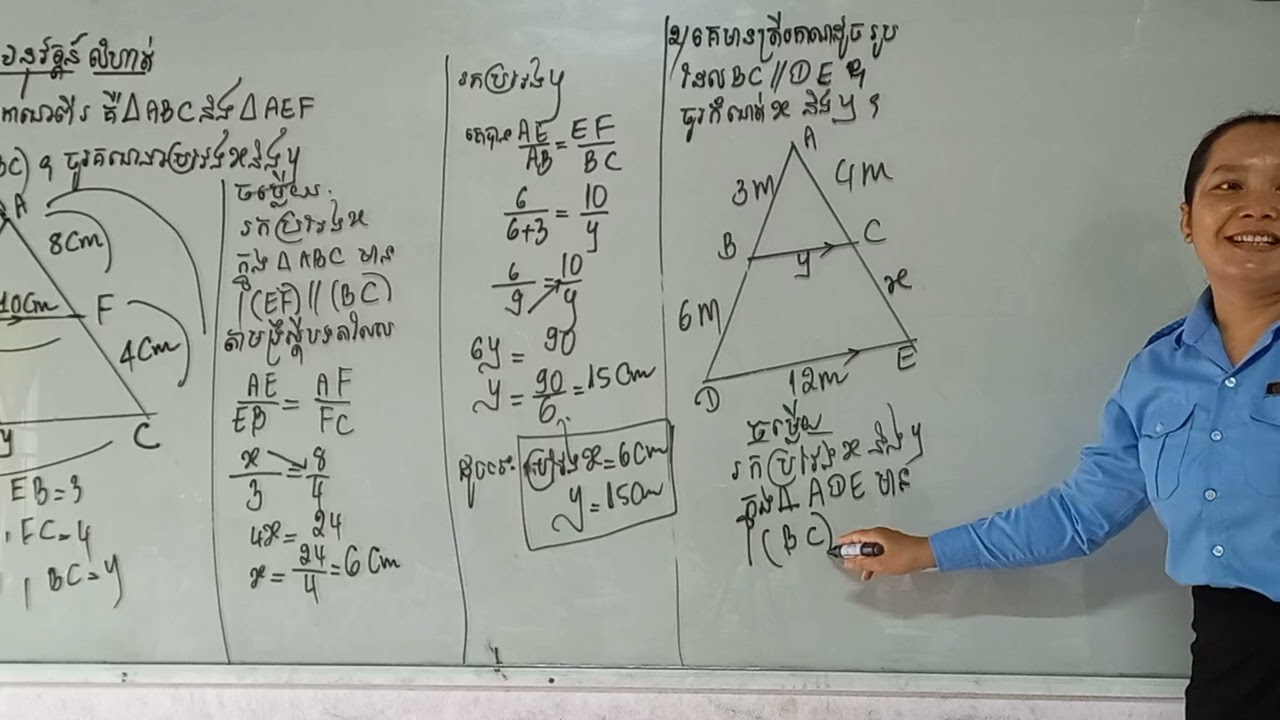 លំហាត់
គឺ ΔABC និង ΔAEF
BC) ។ ចូរគណនាប្រវែង x និង y
A
8Cm
10Cm
F
4Cm
y
C
EB=3
FC=4
BC=y
ចម្លើយ
រកប្រវែង x
ក្នុង Δ ABC មាន
(EF) // (BC)
តាមទ្រឹស្តីបទតាលែស
AE/EB = AF/FC
x/3 = 8/4
4x = 24
x = 24/4 = 6 Cm
រកប្រវែង y
គេបាន AE/AB = EF/BC
6/6+3 = 10/y
6/9 = 10/y
6y = 90
y = 90/6 = 15 Cm
ដូចនេះ ប្រវែង x = 6 Cm
y = 15 Cm
2/ គេមានត្រីកោណដូចរូប
ដែល BC // DE ។
ចូរកំណត់ x និង y ។
A
3m
4m
B
C
y
6m
x
D
12m
E
ចម្លើយ
រកប្រវែង x និង y
ក្នុង Δ ADE មាន
(BC)